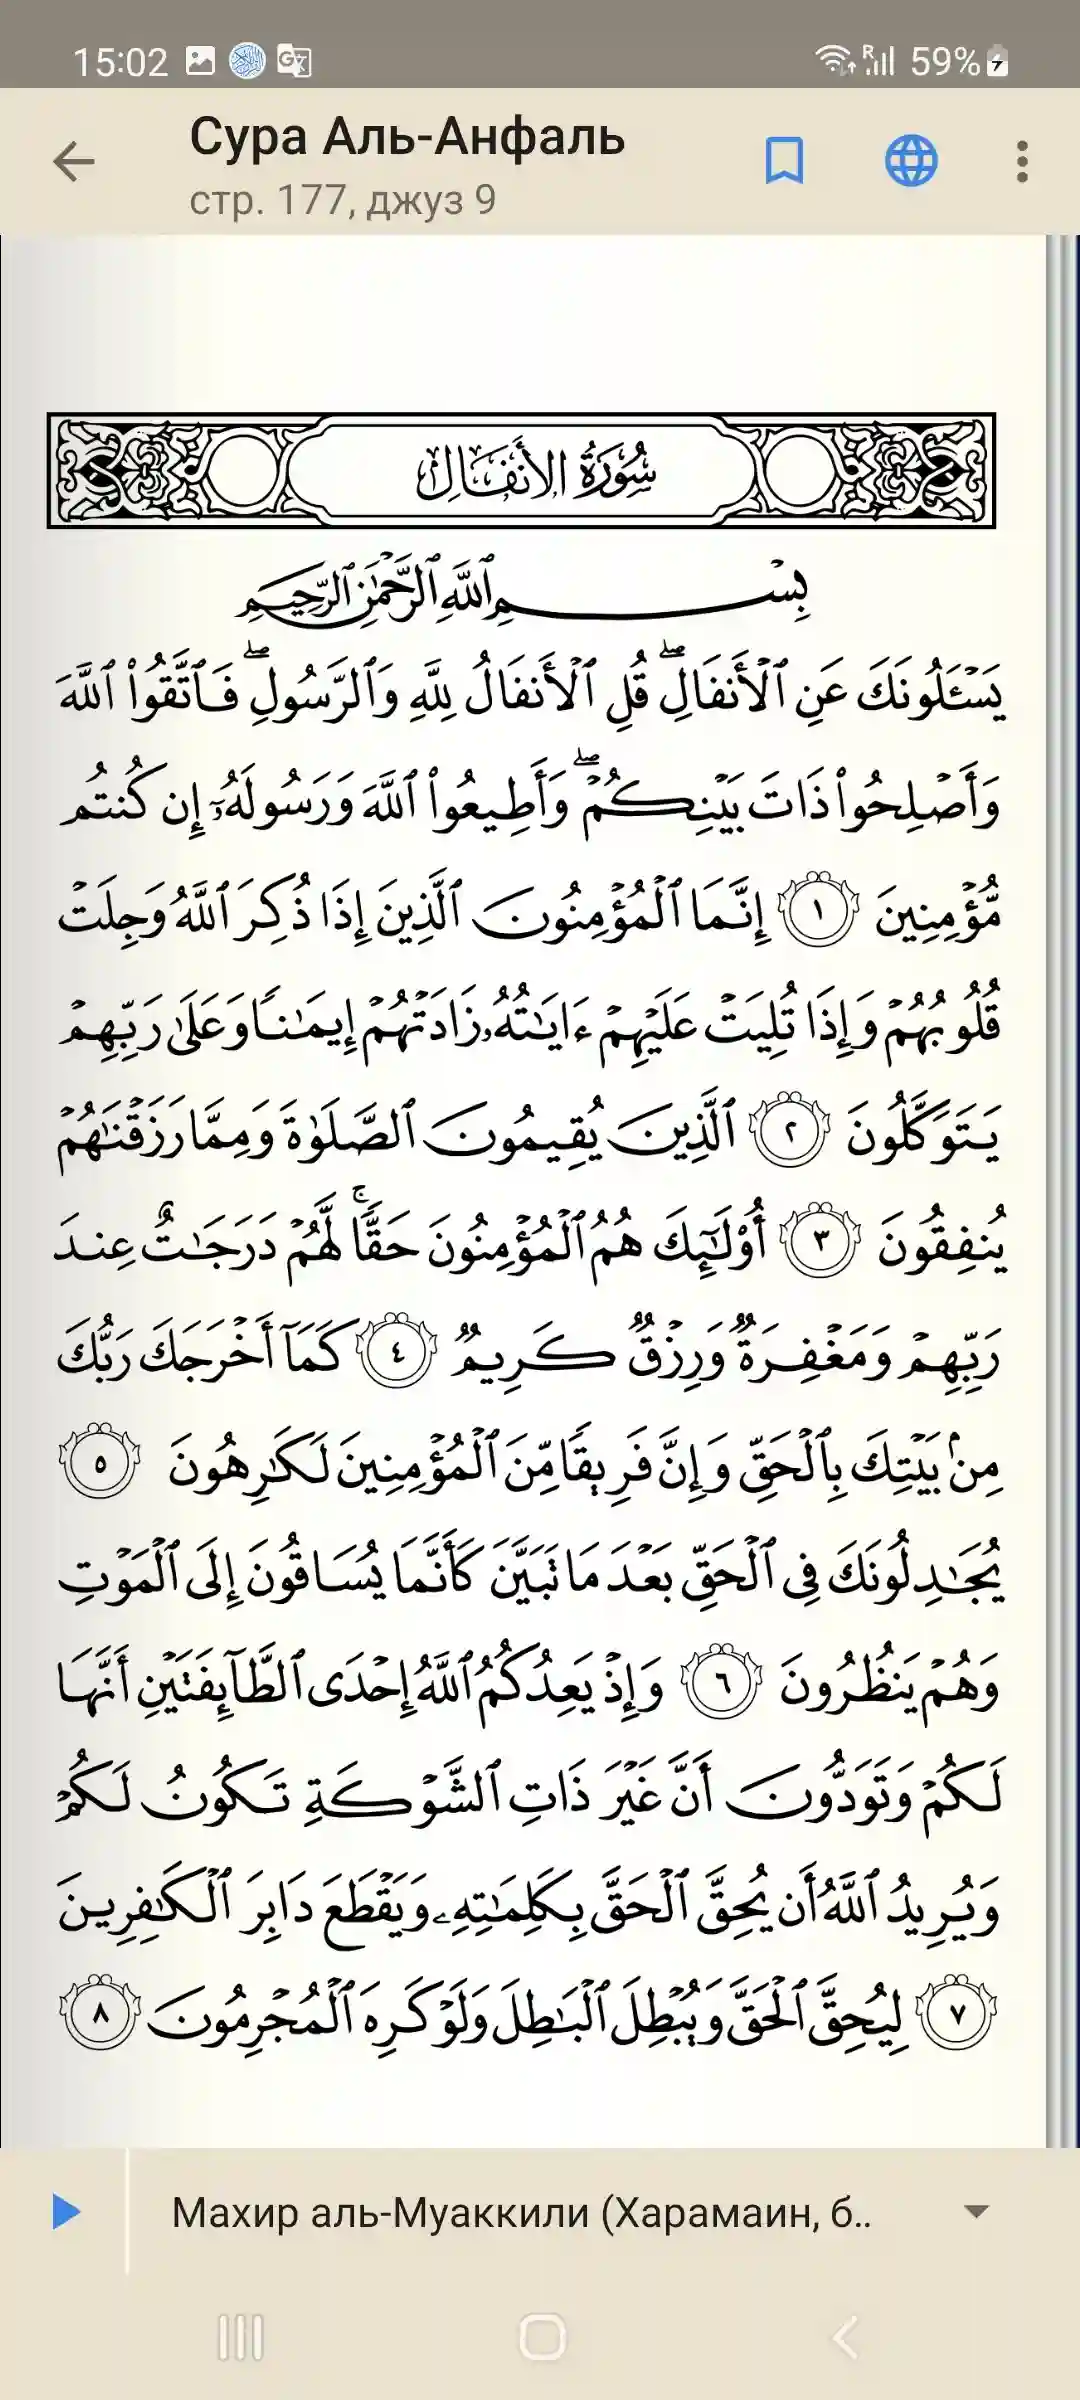 15:02
59%
Сура Аль-Анфаль
стр. 177, джуз 9
سُورَةُ الأَنفَالِ
بِسْمِ ٱللَّهِ ٱلرَّحْمَٰنِ ٱلرَّحِيمِ
يَسْـَٔلُونَكَ عَنِ ٱلْأَنفَالِ ۖ قُلِ ٱلْأَنفَالُ لِلَّهِ وَٱلرَّسُولِ ۖ فَٱتَّقُوا۟ ٱللَّهَ
وَأَصْلِحُوا۟ ذَاتَ بَيْنِكُمْ ۖ وَأَطِيعُوا۟ ٱللَّهَ وَرَسُولَهُۥٓ إِن كُنتُم
مُّؤْمِنِينَ ١ إِنَّمَا ٱلْمُؤْمِنُونَ ٱلَّذِينَ إِذَا ذُكِرَ ٱللَّهُ وَجِلَتْ
قُلُوبُهُمْ وَإِذَا تُلِيَتْ عَلَيْهِمْ ءَايَٰتُهُۥ زَادَتْهُمْ إِيمَٰنًا وَعَلَىٰ رَبِّهِمْ
يَتَوَكَّلُونَ ٢ ٱلَّذِينَ يُقِيمُونَ ٱلصَّلَوٰةَ وَمِمَّا رَزَقْنَٰهُمْ
يُنفِقُونَ ٣ أُو۟لَٰٓئِكَ هُمُ ٱلْمُؤْمِنُونَ حَقًّا ۚ لَّهُمْ دَرَجَٰتٌ عِندَ
رَبِّهِمْ وَمَغْفِرَةٌ وَرِزْقٌ كَرِيمٌ ٤ كَمَآ أَخْرَجَكَ رَبُّكَ
مِنۢ بَيْتِكَ بِٱلْحَقِّ وَإِنَّ فَرِيقًا مِّنَ ٱلْمُؤْمِنِينَ لَكَٰرِهُونَ ٥
يُجَٰدِلُونَكَ فِى ٱلْحَقِّ بَعْدَ مَا تَبَيَّنَ كَأَنَّمَا يُسَاقُونَ إِلَى ٱلْمَوْتِ
وَهُمْ يَنظُرُونَ ٦ وَإِذْ يَعِدُكُمُ ٱللَّهُ إِحْدَى ٱلطَّآئِفَتَيْنِ أَنَّهَا
لَكُمْ وَتَوَدُّونَ أَنَّ غَيْرَ ذَاتِ ٱلشَّوْكَةِ تَكُونُ لَكُمْ
وَيُرِيدُ ٱللَّهُ أَن يُحِقَّ ٱلْحَقَّ بِكَلِمَٰتِهِۦ وَيَقْطَعَ دَابِرَ ٱلْكَٰفِرِينَ
٧ لِيُحِقَّ ٱلْحَقَّ وَيُبْطِلَ ٱلْبَٰطِلَ وَلَوْ كَرِهَ ٱلْمُجْرِمُونَ ٨
Махир аль-Муаккили (Харамаин, б..